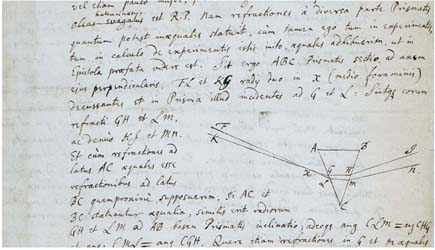 vel etiam paulo major,
est R.P. Nam refractiones à diversa parte Prismatis
quantum potest inæquales statuit, cum tamen ego tum in experimentis
tum in calculo de experimentis istis inito, æquales adhibuerim, ut in
Epistola præfata videre est. Sit ergo ABC Prismatis sectio, ad axem
ejus perpendicularis, FL et KG radij duo in x (medio foraminis)
decussantes et in Prisma illud incidentes ad G et L: Suntque eorum
refracti GH et LM,
ac denuo HI et MN.
Et cum refractiones ad
latus AC æquales esse
refractionibus ad latus
BC quamproxime supposuerim, si AC et
BC statuantur æqualia, similis erit radiorum
GH et LM ad AB basem Prismatis inclinatio; adeoque ang CLM = ang CHG
et ang. CML = ang CGH. Quare etiam refractiones in G et M æquales
F
K
A
B
x
G
H
L
M
C
I
N